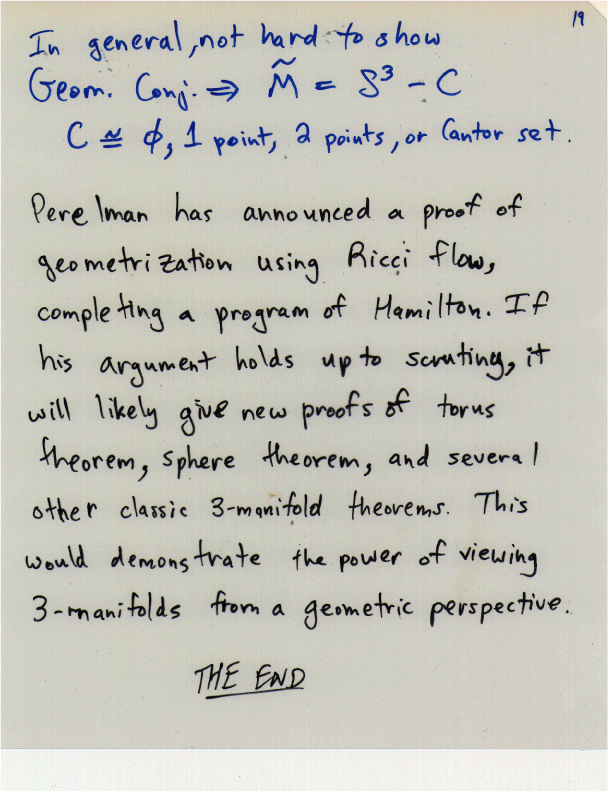 19
In general, not hard to show
Geom. Conj. ⇒ M̃ = S³ - C
C ≅ φ, 1 point, 2 points, or Cantor set.
Perelman has announced a proof of
geometrization using Ricci flow,
completing a program of Hamilton. If
his argument holds up to scrutiny, it
will likely give new proofs of torus
theorem, sphere theorem, and several
other classic 3-manifold theorems. This
would demonstrate the power of viewing
3-manifolds from a geometric perspective.
THE END